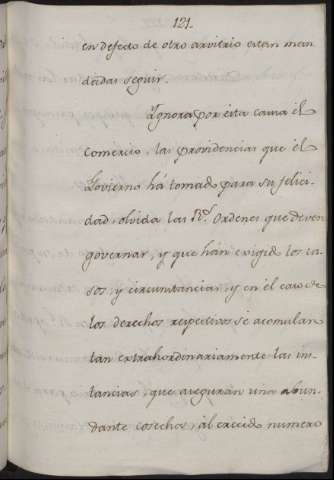 121.
en defecto de otro arvitrio estan man
dadas seguir.
Ignora por esta causa el
Comercio, las providencias que él
Govierno há tomado para su felici
dad, olvida las Rs. Ordenes que deven
governar, y que hán exigido los ca
sos, y circunstancias, y en él caso de
los derechos respectivos se acomulan
tan extrahordinariamente las ins
tancias, que aseguran una abun
dante cosecha, al crecido numero